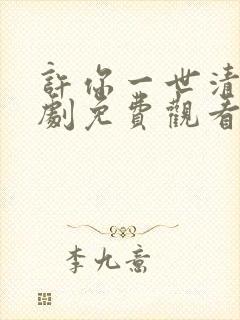 許你一世清
劇免費觀看
李九意